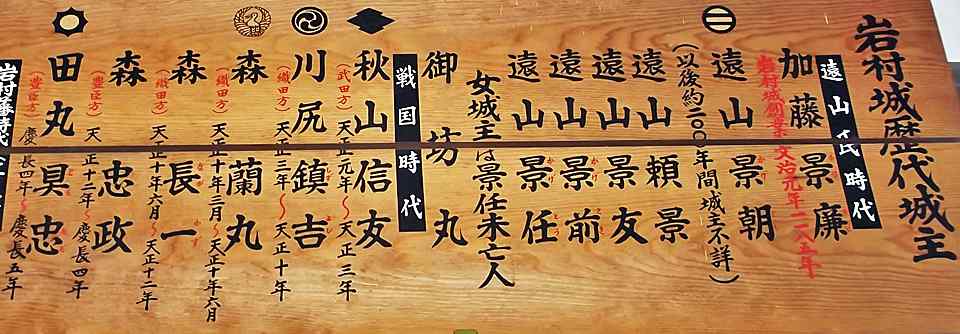 岩村城歴代城主
遠山氏時代
加藤景廉
岩村城創業 文治元年一一八五年
遠山景朝
(以後約二〇〇年間城主不詳)
遠山頼景
遠山景友
遠山景前
遠山景任
女城主は景任未亡人
御坊丸
戦国時代
秋山信友
(武田方) 天正元年〜天正三年
川尻鎮吉
(織田方) 天正三年〜天正十年
森蘭丸
(織田方) 天正十年三月〜天正十年六月
森長一
(織田方) 天正十年六月〜天正十二年
森忠政
(豊臣方) 天正十二年〜慶長四年
田丸具忠
(豊臣方) 慶長四年〜慶長五年
岩村藩時代